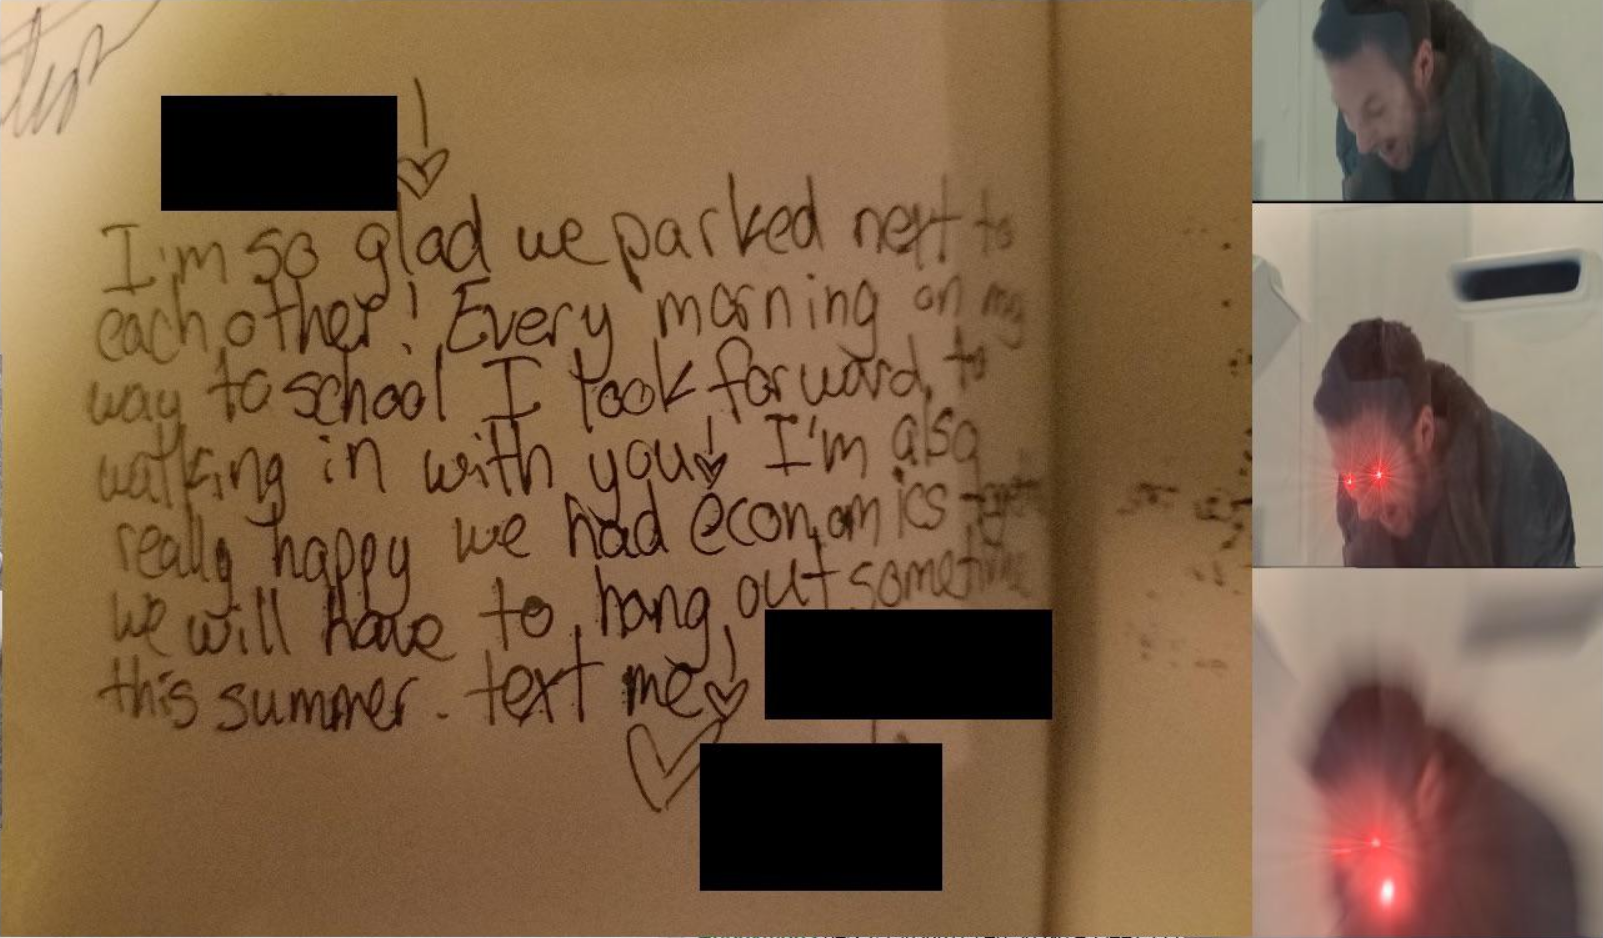 I'm so glad we parked next to
each other! Every morning on my
way to school I look forward to
walking in with you! I'm also
really happy we had economics
we will have to hang out sometime
this summer. text me!